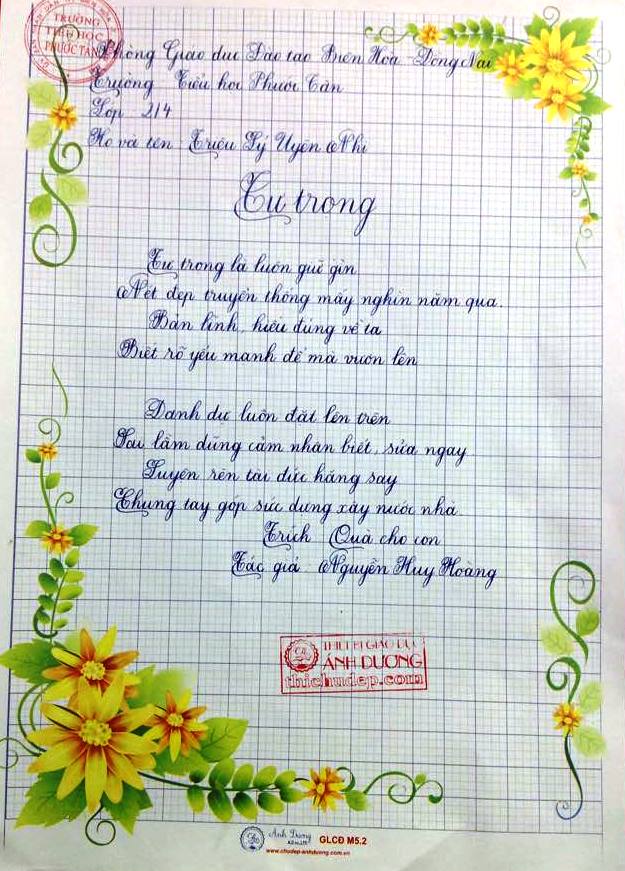 TRƯỜNG
TIỂU HỌC
PHƯỚC TÂN
Phòng Giáo dục Đào tạo Biên Hòa - Đồng Nai
Trường Tiểu học Phước Tân
Lớp 2/4
Họ và tên Triệu Lý Uyên Nhi
Tự trọng
Tự trọng là luôn giữ gìn
Nét đẹp truyền thống mấy nghìn năm qua.
Bản lĩnh, hiểu đúng về ta
Biết rõ yếu mạnh để mà vươn lên
Danh dự luôn đặt lên trên
Sai lầm dũng cảm nhận biết, sửa ngay
Luyện rèn tài đức hăng say
Chung tay góp sức dựng xây nước nhà
Trích Quà cho con
Tác giả Nguyễn Huy Hoàng
THIẾT BỊ GIÁO DỤC
ÁNH DƯƠNG
thichudep.com
Ánh Dương
GLCĐ M5:2
www.chudep-anhduong.com.vn